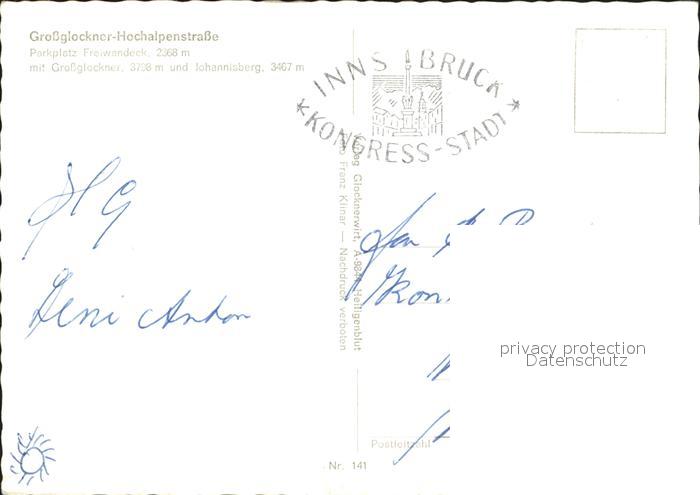 Großglockner-Hochalpenstraße
Parkplatz Freiwandeck, 2368 m
mit Großglockner, 3798 m und Johannisberg, 3467 m
INNSBRUCK
KONGRESS-STADT
HG
Anton
Glocknerwirt, A-9844 Heiligenblut
Franz Klinar — Nachdruck verboten
privacy protection
Datenschutz
Postleitzahl
Nr. 141